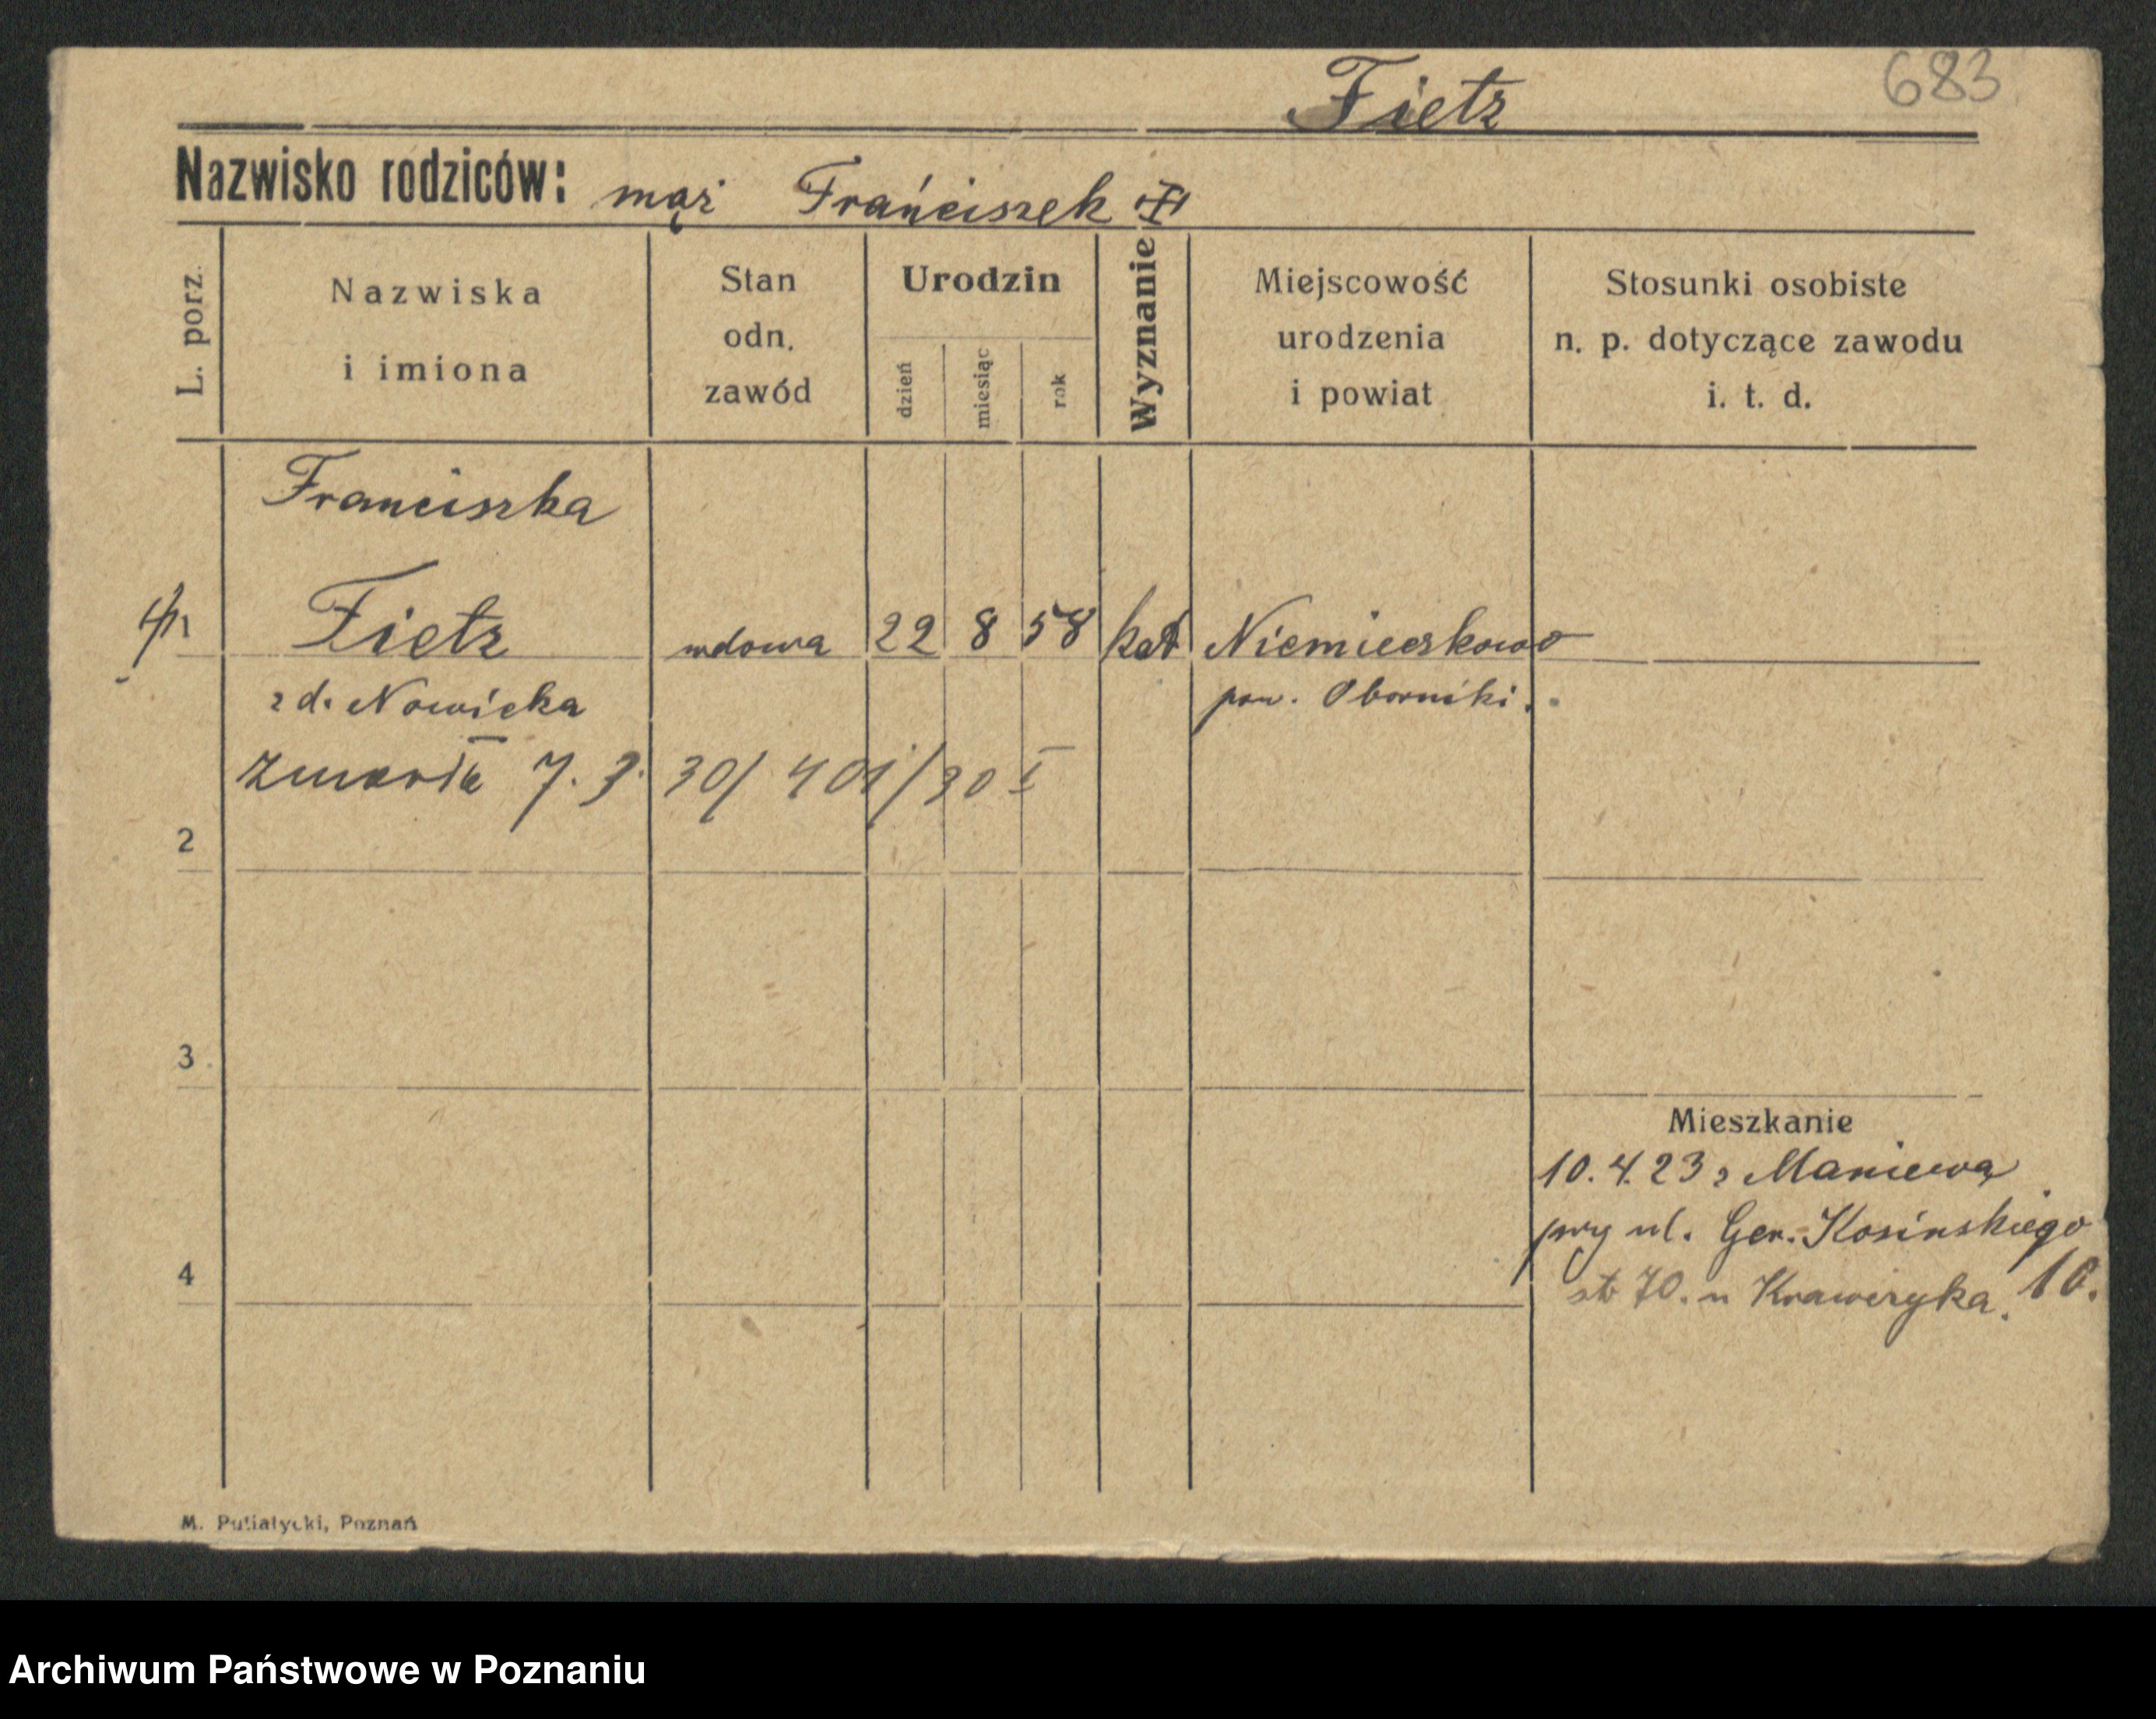 683
Fietz
Nazwisko rodziców: mąż Franciszek
L. porz.
Nazwiska
i imiona
Stan
odn.
zawód
Urodzin
dzień
miesiąc
rok
Wyznanie
Miejscowość
urodzenia
i powiat
Stosunki osobiste
n. p. dotyczące zawodu
i. t. d.
Franciszka
1 Fietz wdowa 22 8 58 kat Niemieczkowo
z d. Nowicka pow. Oborniki.
zmarła 7. 3. 30/ 401/30 I
2
3
Mieszkanie
10. 4. 23 z Maniewa
przy ul. Gen. Kosinskiego
4
str 70. u Krawczyka. 10.
M. Putiatycki, Poznań
Archiwum Państwowe w Poznaniu